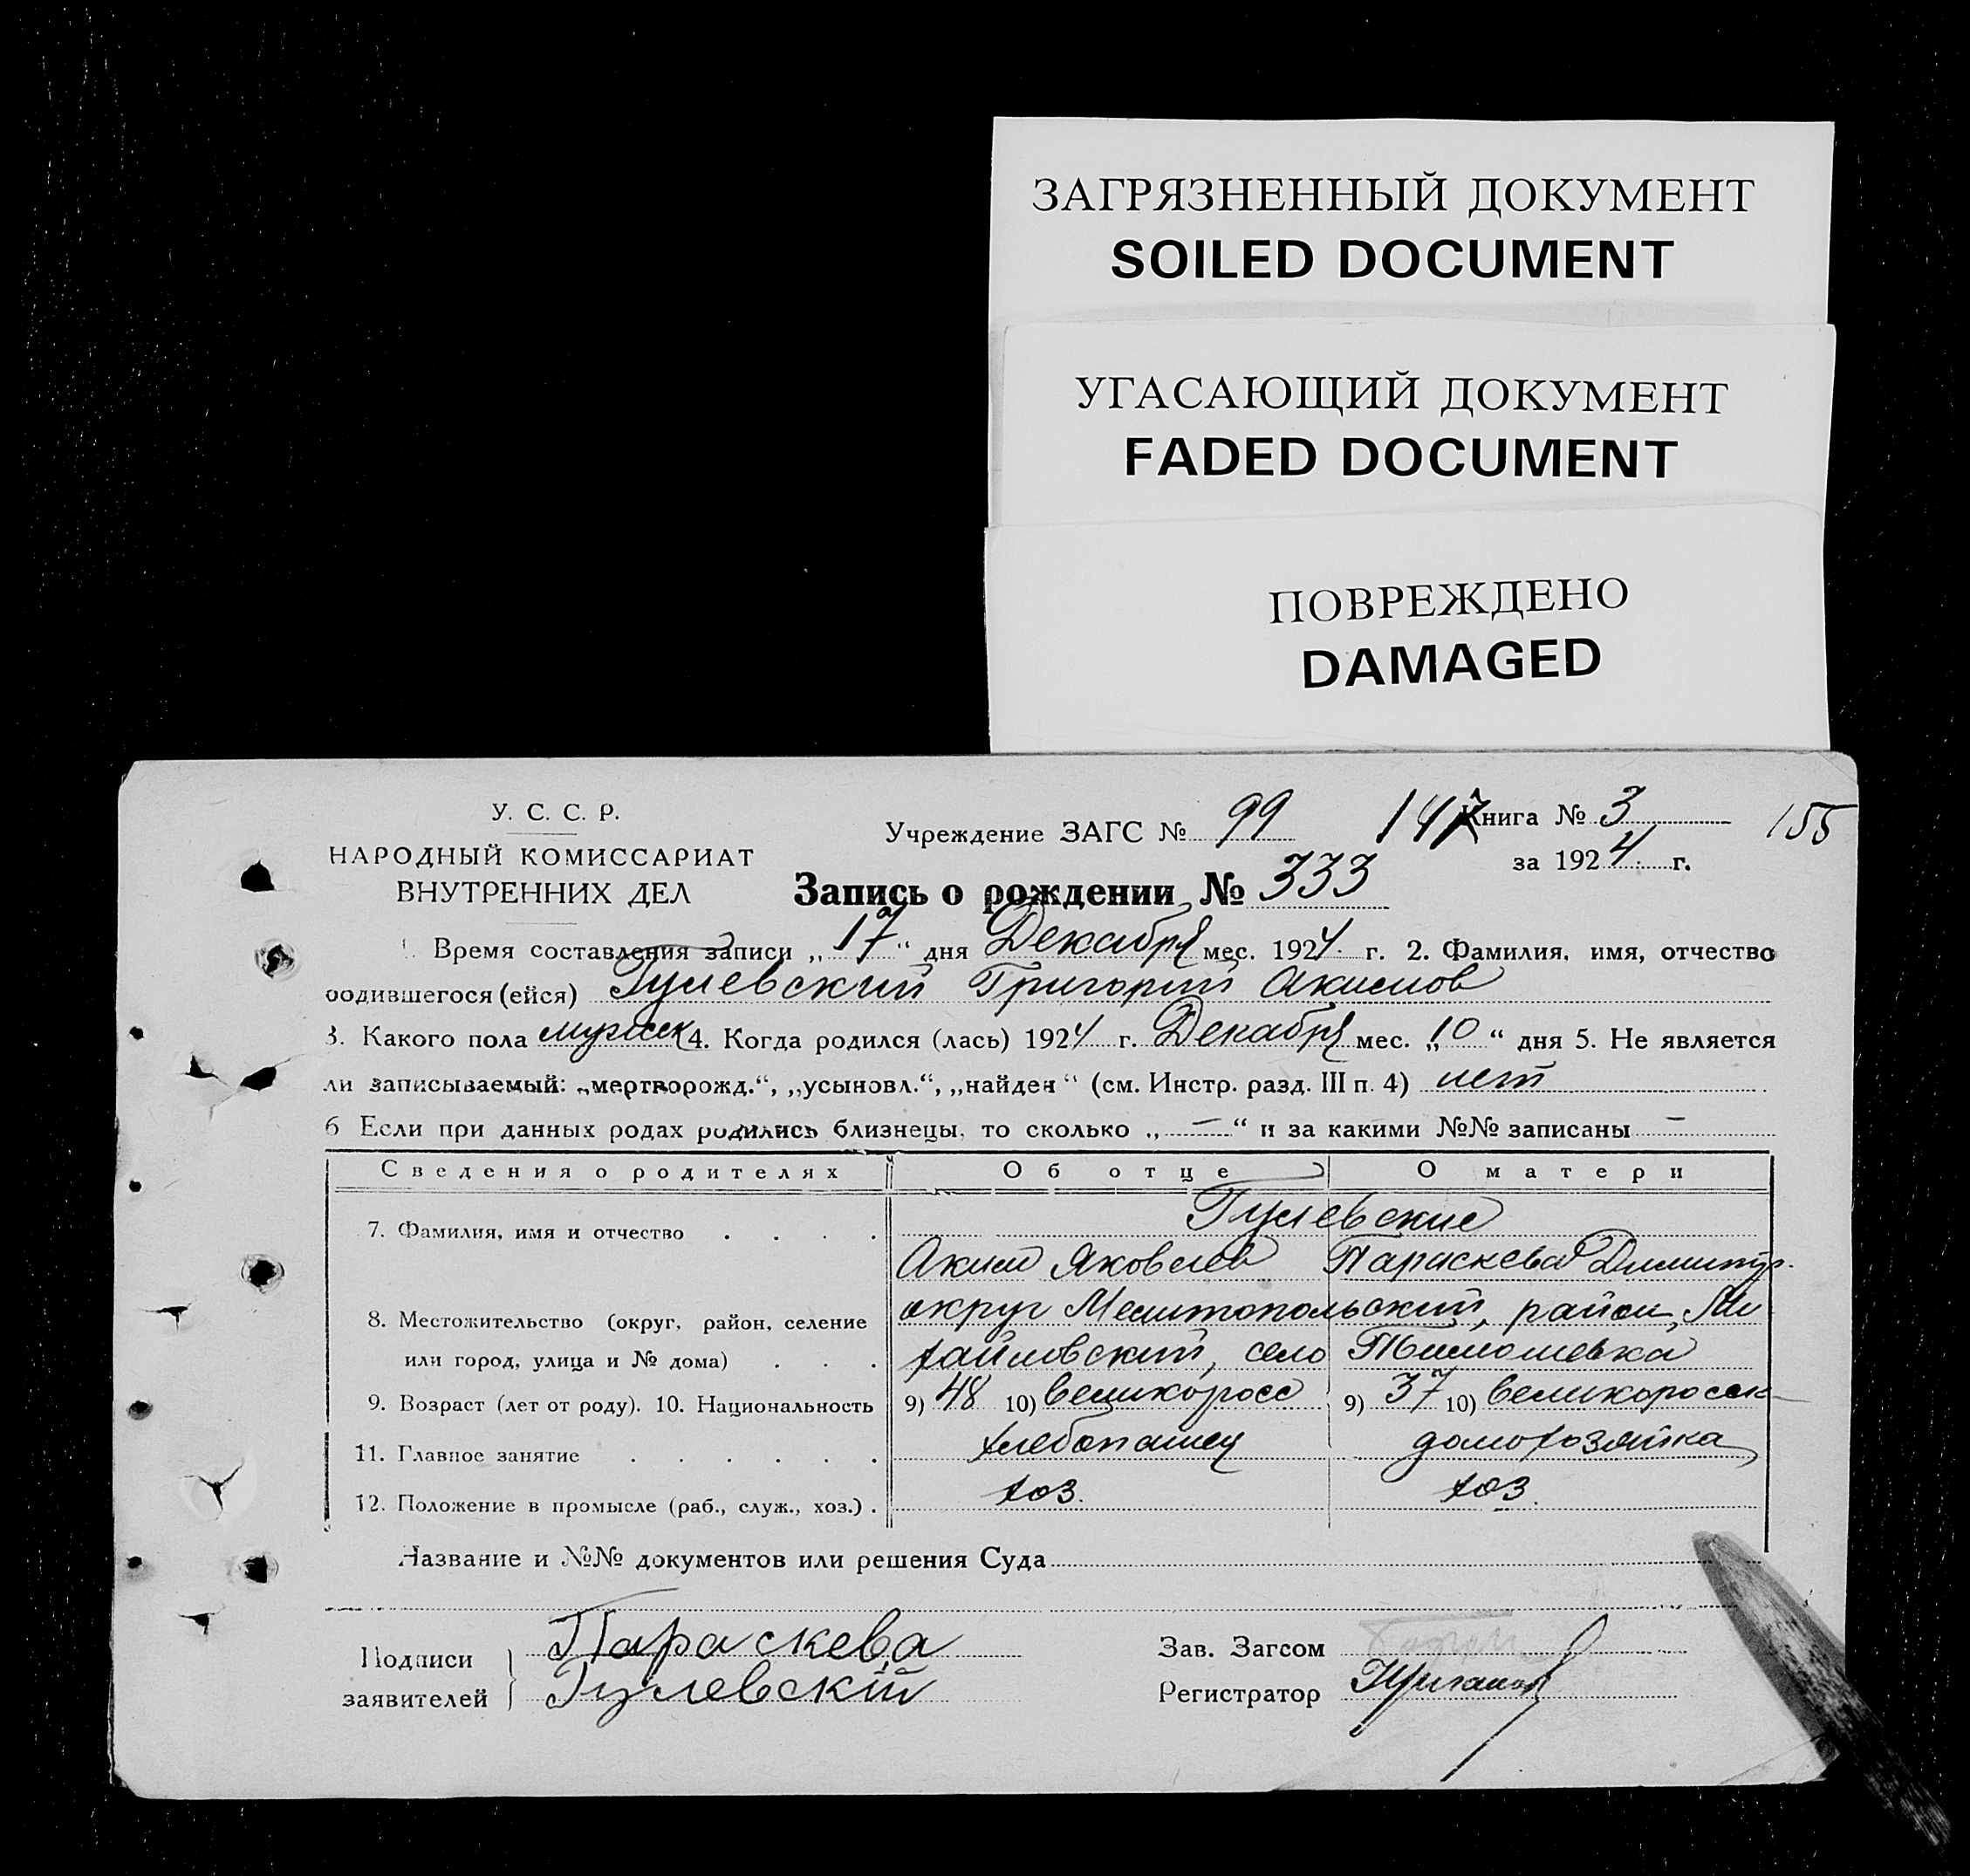 ЗАГРЯЗНЕННЫЙ ДОКУМЕНТ
SOILED DOCUMENT
УГАСАЮЩИЙ ДОКУМЕНТ
FADED DOCUMENT
ПОВРЕЖДЕНО
DAMAGED
У. С. С. Р.
НАРОДНЫЙ КОМИССАРИАТ
ВНУТРЕННИХ ДЕЛ
Учреждение ЗАГС № 99 147 Книга № 3 155
за 1924 г.
Запись о рождении № 333
1. Время составления записи „17" дня Декабря мес. 1924 г. 2. Фамилия, имя, отчество
родившегося (ейся) Гулевский Григорий Акимов
3. Какого пола мужск 4. Когда родился (лась) 1924 г. Декабря мес. „10" дня 5. Не является
ли записываемый: „мертворожд.", „усыновл.", „найден" (см. Инстр. разд. III п. 4) нет
6 Если при данных родах родились близнецы, то сколько „—" и за какими №№ записаны —
Сведения о родителях Об отце О матери
7. Фамилия, имя и отчество Гулевские
Аким Яковлев Параскева Димитр.
8. Местожительство (округ, район, селение округ Мелитопольский, район Ми
или город, улица и № дома) хайловский, село Тимошевка
9. Возраст (лет от роду). 10. Национальность 9) 48 10) великоросс 9) 37 10) великоросск
11. Главное занятие хлебопашец домохозяйка
12. Положение в промысле (раб., служ., хоз.) хоз. хоз.
Название и №№ документов или решения Суда
Подписи
заявителей
Параскева
Гулевскій
Зав. Загсом
Регистратор